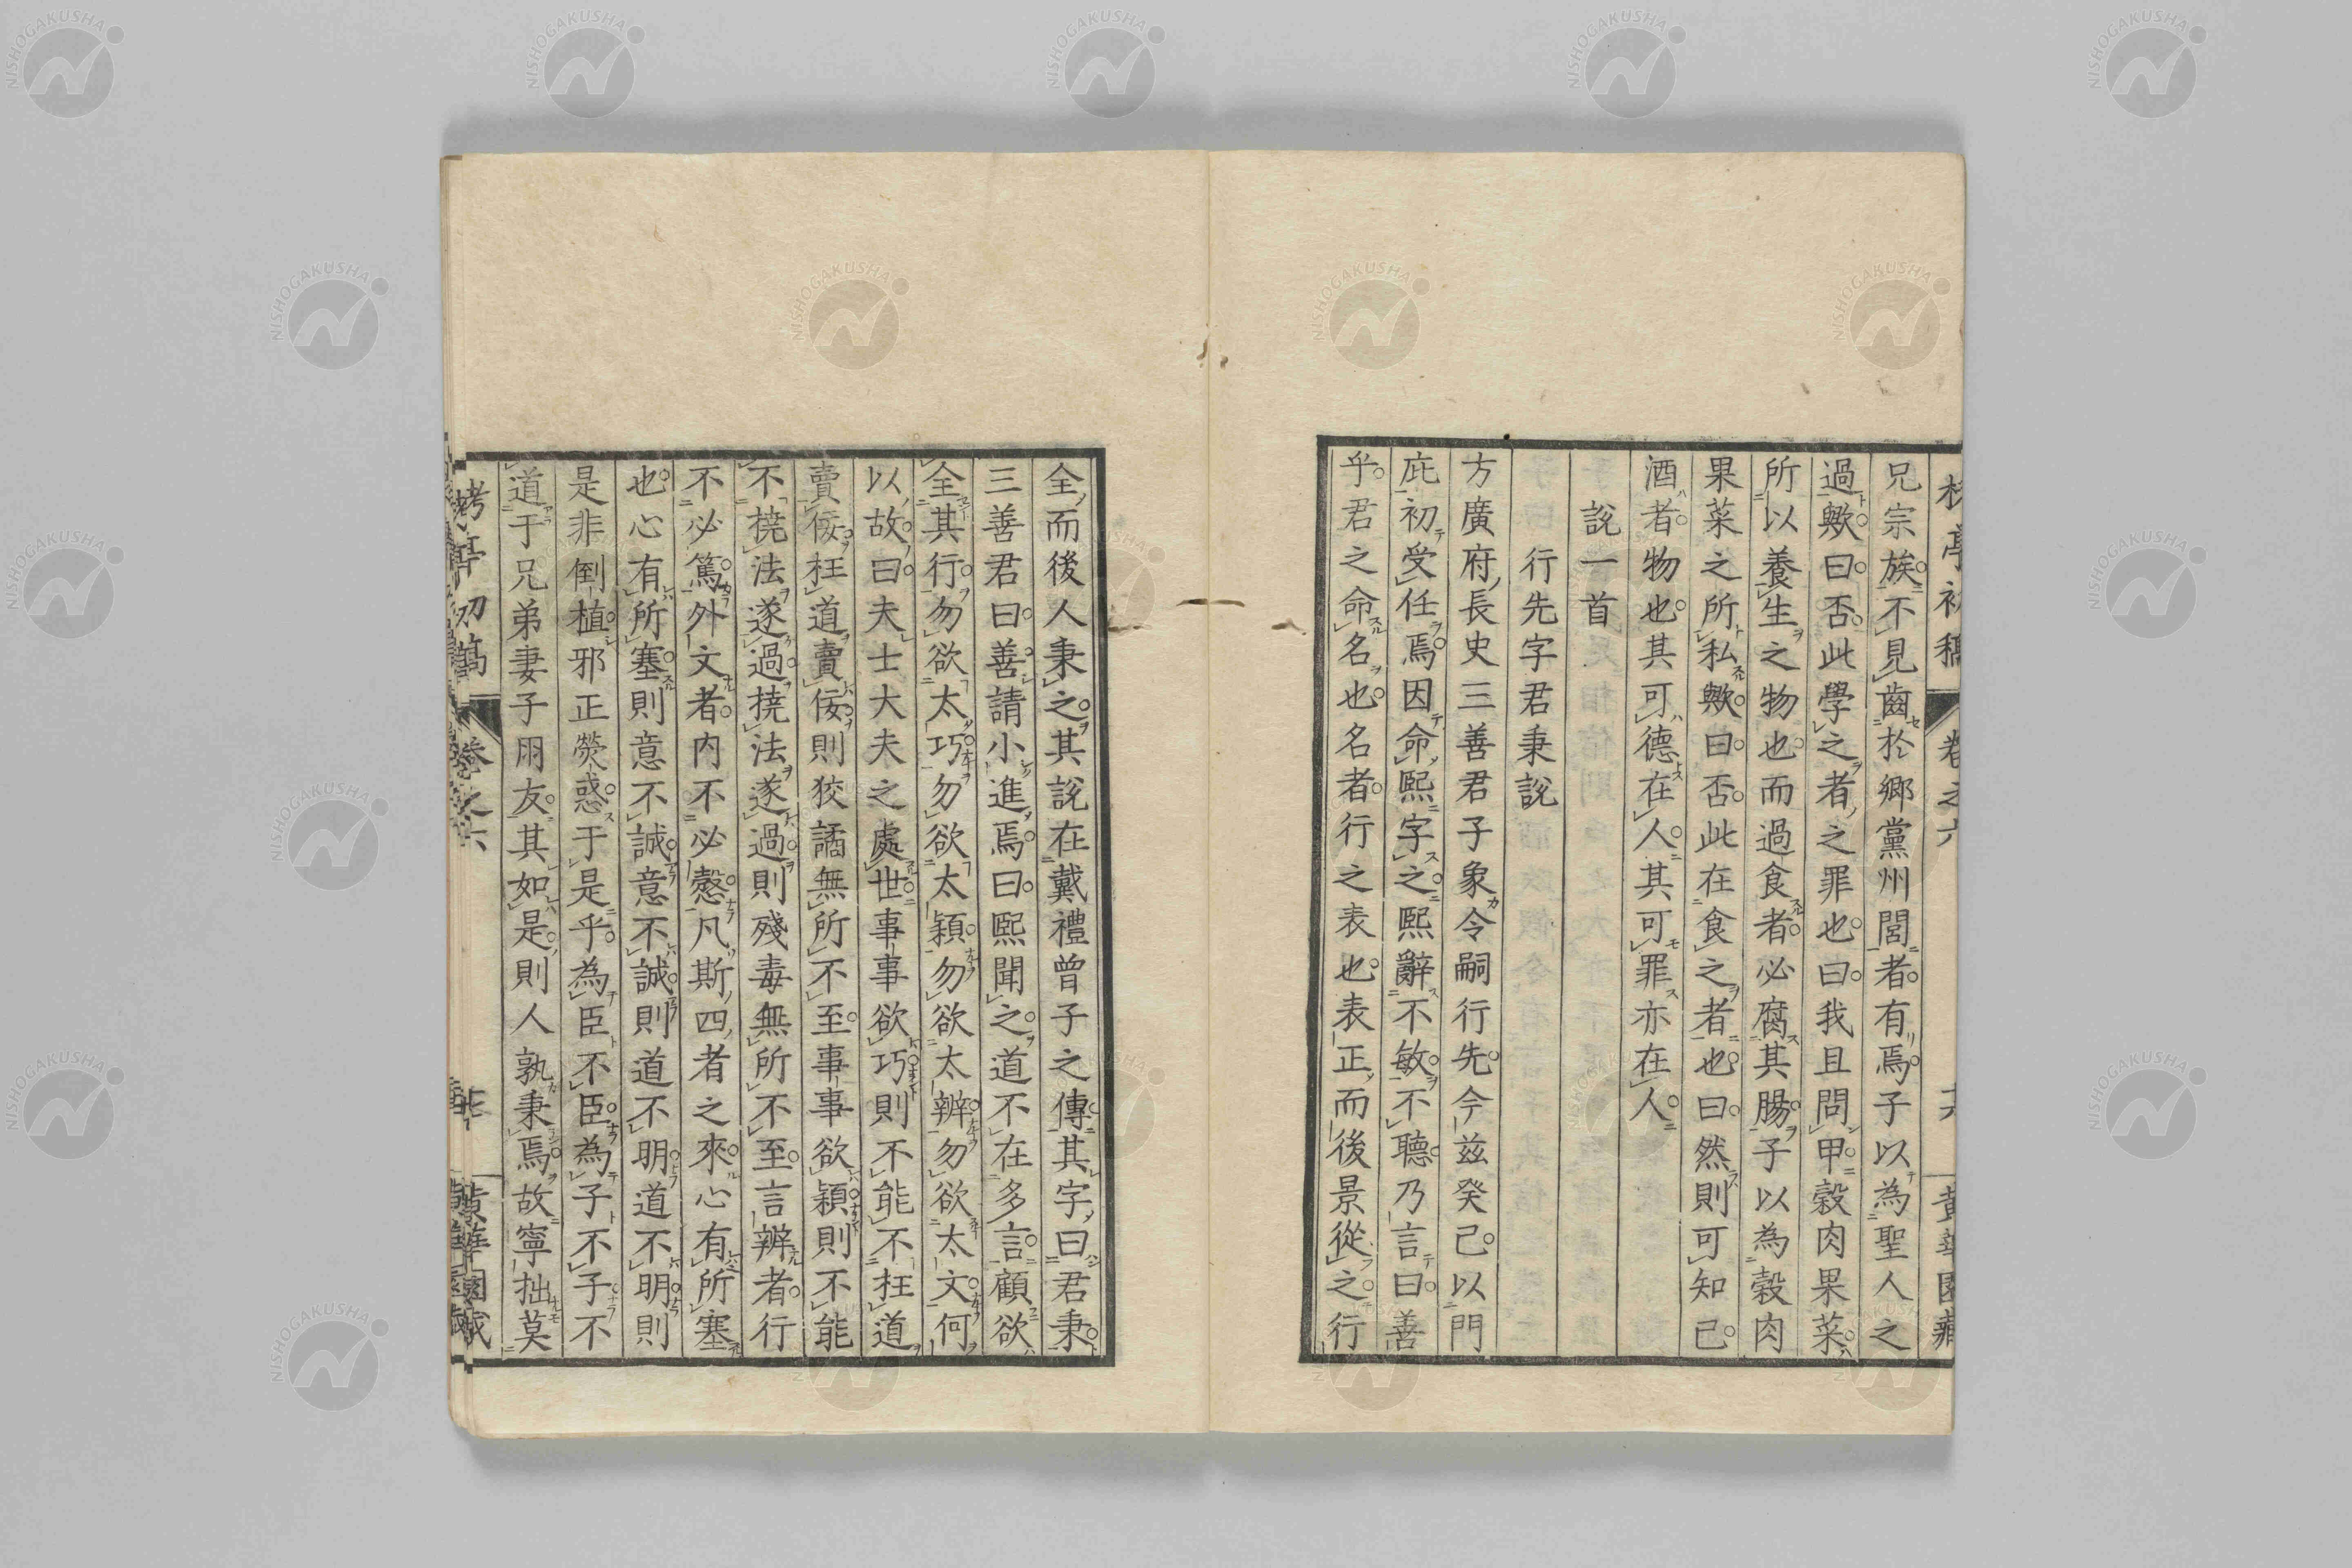 兄宗族不見齒於鄉黨州閭者有焉子以為聖人之
過歟曰否此學之者之罪也曰我且問甲穀肉果菜
所以養生之物也而過食者必腐其腸子以為穀肉
果菜之所私歟曰否此在食之者也曰然則可知己
酒者物也其可德在人其可罪亦在人
說一首
行先字君秉說
方廣府長史三善君子象令嗣行先今茲癸己以門
庇初受任焉因命熙字之熙辭不敏不聽乃言曰善
乎君之命名也名者行之表也表正而後景從之行
全而後人秉之其說在戴禮曾子之傳其字曰君秉
三善君曰善請小進焉曰熙聞之道不在多言顧欲
全其行勿欲太巧勿欲太穎勿欲太辨勿欲太文何
以故曰夫士大夫之處世事事欲巧則不能不枉道
賣佞枉道賣佞則狡譎無所不至事事欲穎則不能
不撓法遂過撓法遂過則殘毒無所不至言辨者行
不必篤外文者內不必愨凡斯四者之來心有所塞
也心有所塞則意不誠意不誠則道不明道不明則
是非倒植邪正熒惑于是乎為臣不臣為子不子不
道于兄弟妻子朋友其如是則人孰秉焉故寧拙莫
卷之六